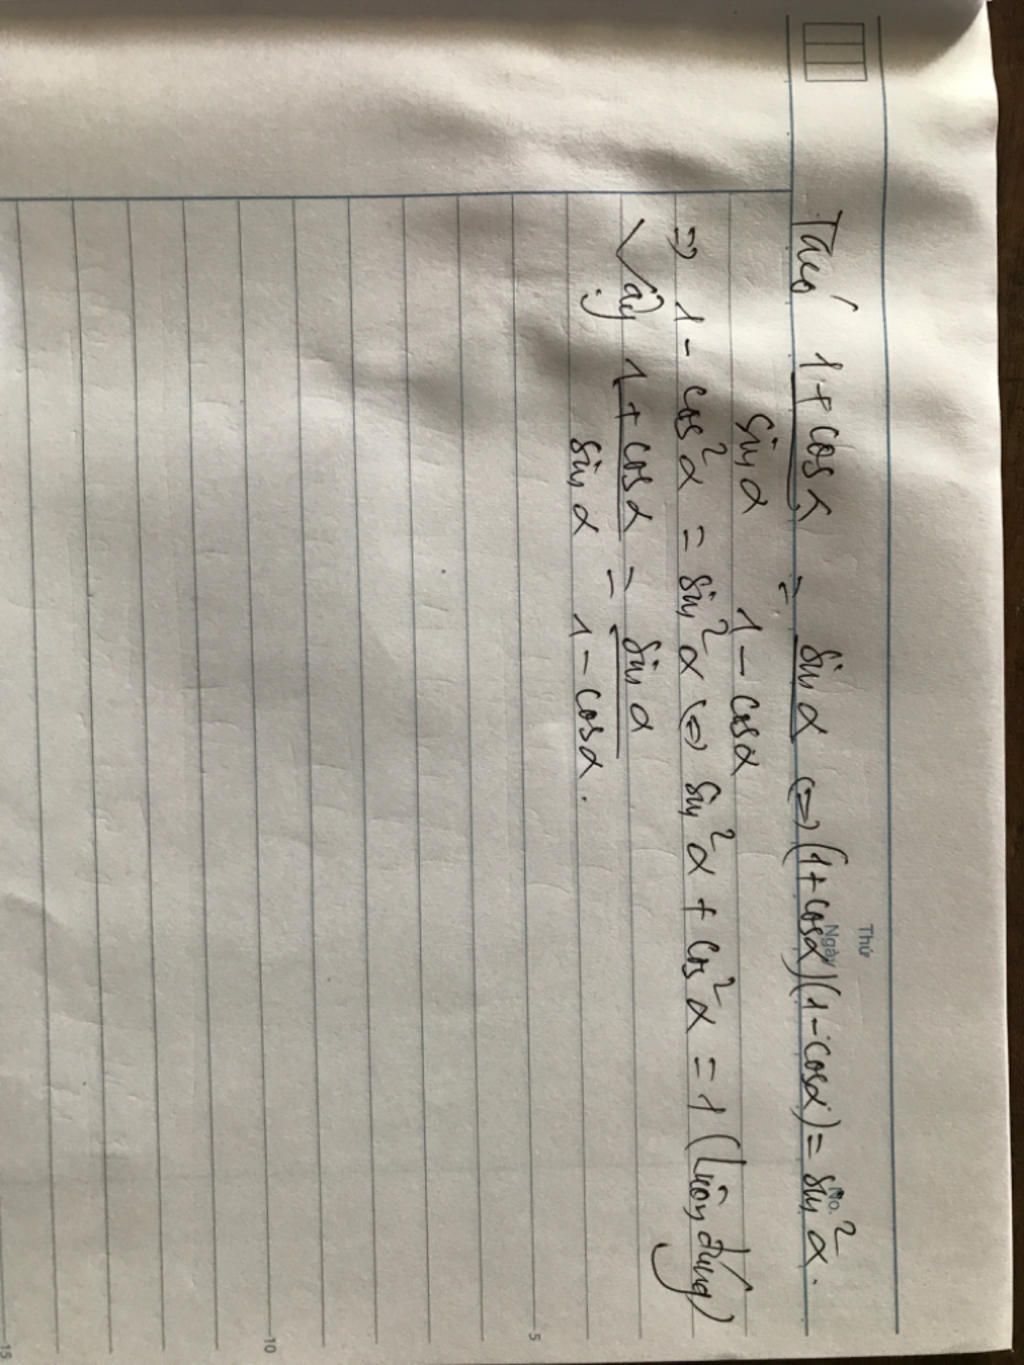 Thứ
Ngày
No.
Ta có 1 + cos α / sin α = sin α / 1 - cos α (=) (1 + cos α)(1 - cos α) = sin² α.
=) 1 - cos² α = sin² α (=) sin² α + cos² α = 1 (Luôn đúng)
Vậy 1 + cos α / sin α = sin α / 1 - cos α.
5
10
15